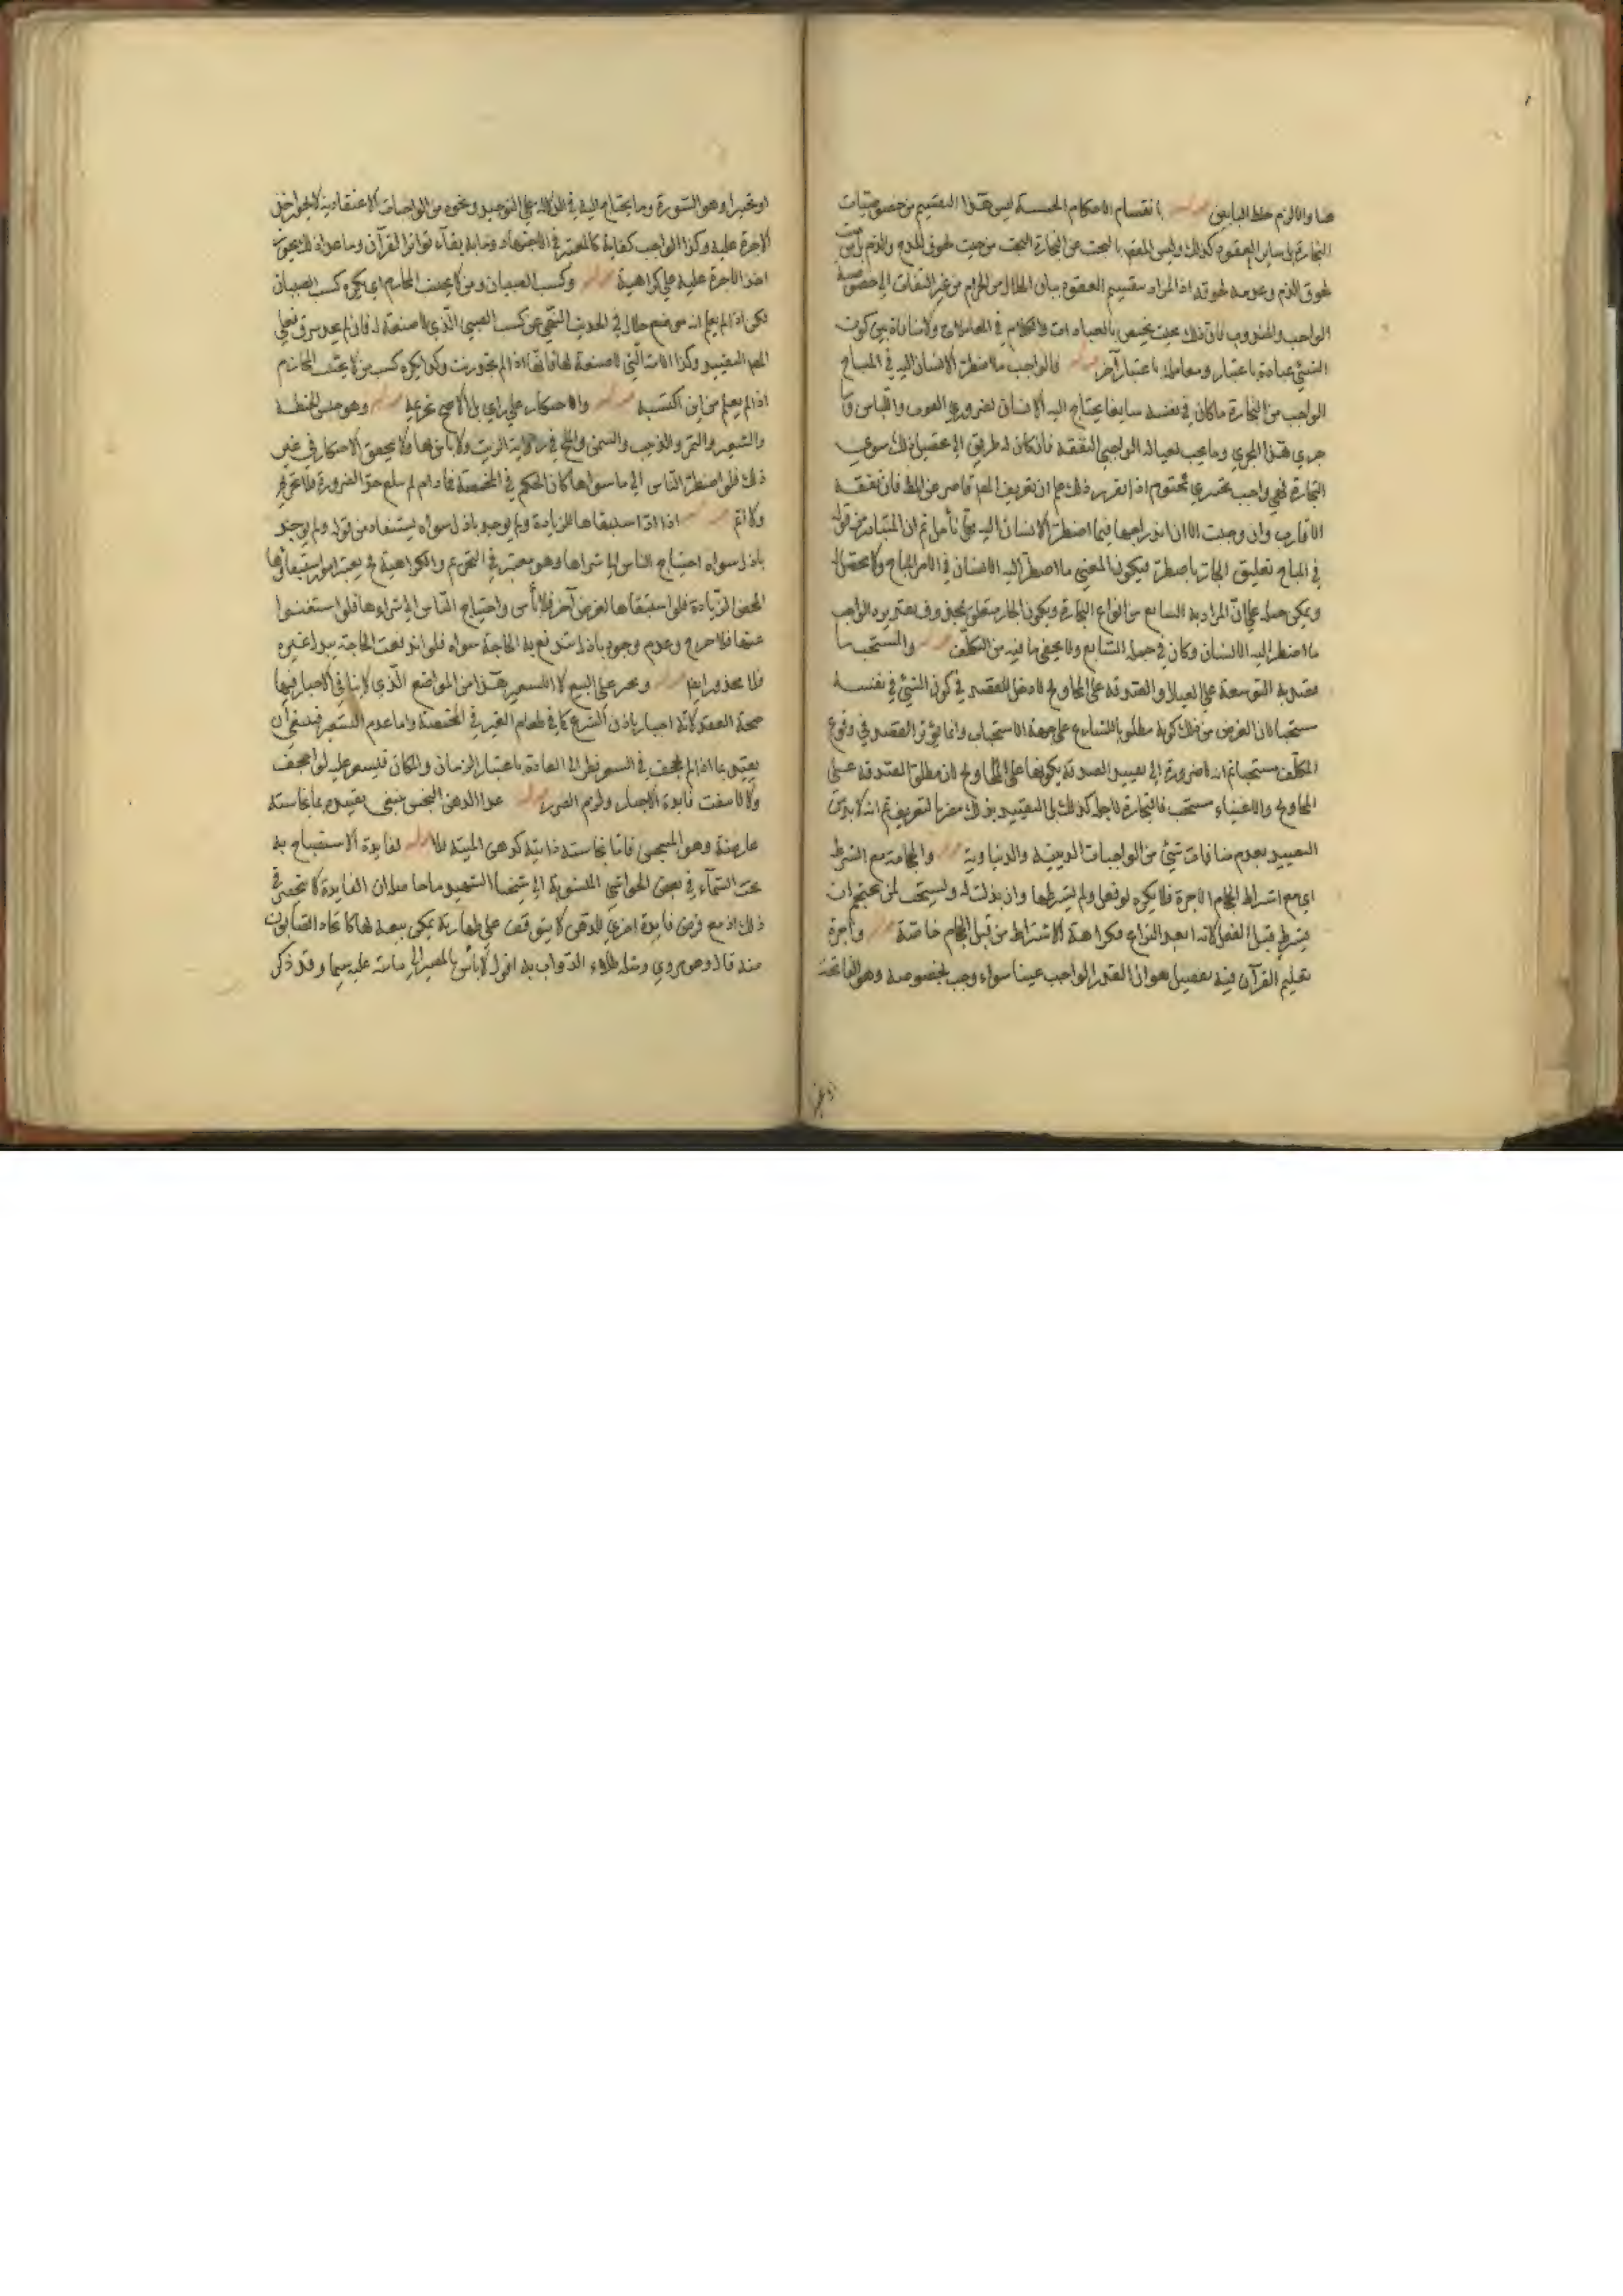 هنا والا لزم خلط البابين قوله بانقسام الاحكام الخمسة ليس هذا التقسيم من خصوصيات
التجارة بل ساير العقود كذلك وليس المقصود بالبحث عن التجارة البحث من حيث لحوق المدح والذم بل من حيث
لحوق الذم وعدمه لحوقه اذ المراد بتقسيم العقود بيان الحلال من الحرام من غير التفات الى خصوصية
الواجب والمندوب فان ذلك بحث يختص بالعبادات والكلام في المعاملات ولا منافاة بين كون
الشيئ عبادة باعتبار ومعاملة باعتبار آخر قوله فالواجب ما اضطر الانسان اليه في المباح
الواجب من التجارة ما كان في نفسه سايغا يحتاج اليه الانسان لضروري القوت واللباس وما
جرى هذا المجرى وما يجب لعياله الواجبي النفقة فان كان له طريق الى تحصيل ذلك سوى
التجارة فهي واجب تخييري والا محتوم اذا تقرر ذلك علم ان تعريف المصنف قاصر عن المطلوب فان نفقة
الاقارب وان وجبت الا ان اندراجها فيما اضطر الانسان اليه محل تأمل ثم ان المتبادر من قوله
في المباح تعليق الجار باضطر فيكون المعنى ما اضطر اليه الانسان في الامر المباح ولا محصل له
ويمكن حمله على ان المراد به السايغ من انواع التجارة ويكون الجار متعلق بمحذوف تقديره الواجب
ما اضطر اليه الانسان وكان في جملة السايغ ولا يخفى ما فيه من التكلف قوله والمستحب ما
قصد به التوسعة على العيال او الصدقة على المحاويج لا دخل للقصد في كون الشيئ في نفسه
مستحبا لان الغرض من ذلك كونه مطلوبا للشارع على جهة الاستحباب وانما يؤثر القصد في وقوع
المكلف مستحبا ثم انه لا ضرورة الى تقييد الصدقة بكونها على المحاويج لان مطلق الصدقة على
المحاويج والاغنياء مستحب فالتجارة لاجله كذلك بل التقييد بذلك مضر بالتعريف ثم انه لا بد من
التقييد بعدم منافات شيئ من الواجبات الدينية والدنياوية قوله والحجامة مع الشرط
اي مع اشتراط الحجام الاجرة فلا يكره لو فعل ولم يشرطها وان بذلت له ويستحب لمن يحتجم ان
يشرط قبل الفعل لانه ابعد النزاع فكراهة الاشتراط من قبل الحجام خاصة قوله واجرة
تعليم القرآن فيه تفصيل هو ان القدر الواجب عينا سواء وجب بخصوصه وهو الفاتحة
او تخييرا
او تخييرا وهو السورة وما يحتاج اليه في الدلالة على التوحيد ونحوه من الواجبات الاعتقادية لا يجوز اخذ
الاجرة عليه وكذا الواجب كفاية كالمعتبر في الاجتهاد وما به بقآء تواتر القرآن وما عدا ذلك يجوز
اخذ الاجرة عليه على كراهية قوله وكسب الصبيان ومن لا يجتنب المحارم اي يكره كسب الصبيان
لكن اذا لم يعلم انه من موضع حلال في الحديث النهي عن كسب الصبي الذي لا صنعة له فانه ان لم يجد سرق فعلى
المصنف التقييد وكذا الامة التي لا صنعة لها فانها اذا لم تجد زنت وكذا يكره كسب من لا يجتنب المحارم
اذا لم يعلم من اين اكتسبه قوله والاحتكار على راي بل الاصح تحريمه قوله وهو حبس الحنطة
والشعير والتمر والزبيب والسمن والملح في رواية الزيت ولا باس بها فلا يتحقق الاحتكار في غير
ذلك فلو اضطر الناس الى ما سواها كان الحكم في المخمصة فما دام لم يبلغ حد الضرورة فلا تحريم
ولا اثم قوله اذا استبقاها للزيادة ولم يوجد باذل سواه يستفاد من قوله ولم يوجد
باذل سواه احتياج الناس الى شراها وهو معتبر في التحريم والكراهية فيعتبر امور استبقاؤها
لمحض الزيادة فلو استبقاها لغرض آخر فلا بأس واحتياج الناس الى شراءها فلو استغنوا
عنها فلا حرج وعدم وجود باذل تندفع به الحاجة سواه فلو اندفعت الحاجة ببذل غيره
فلا محذور ايضا قوله ويجبر على البيع لا التسعير هذا من المواضع الذي لا ينافي الاجبار فيها
صحة العقد لانه اجبار باذن الشرع كما في طعام الغير في المخمصة واما عدم التسعير فينبغي ان
يقيد بما اذا لم يجحف في السعر نظرا الى العادة باعتبار الزمان والمكان فيسعر عليه لو اجحف
والا انتفت فايدة الاجبار ولزم الضرر قوله عدا الدهن النجس ينبغي تقييده بما نجاسته
عارضة وهو المتنجس فاما نجاسته ذاتية كدهن الميتة فلا قوله لفايدة الاستصباح به
تحت السمآء في بعض الحواشي المنسوبة الى شيخنا الشهيد ما حاصله ان الفايدة لا تنحصر في
ذلك اذ مع فرض فايدة اخرى للدهن لا يتوقف على طهارته يمكن بيعه لها كاتخاذ الصابون
منه قال وهو مروي ومثله طلاء الدواب به اقول لا بأس بالمصير الى ما نبه عليه سيما وقد ذكر